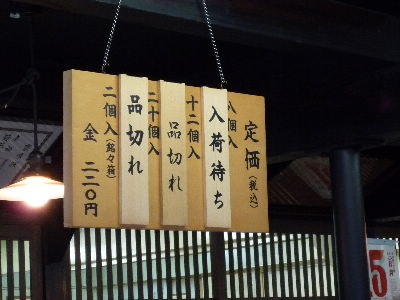 定価(税込)
八個入
入荷待ち
十二個入
品切れ
二十個入
品切れ
二個入(銘々箱)
金 二二〇円
5